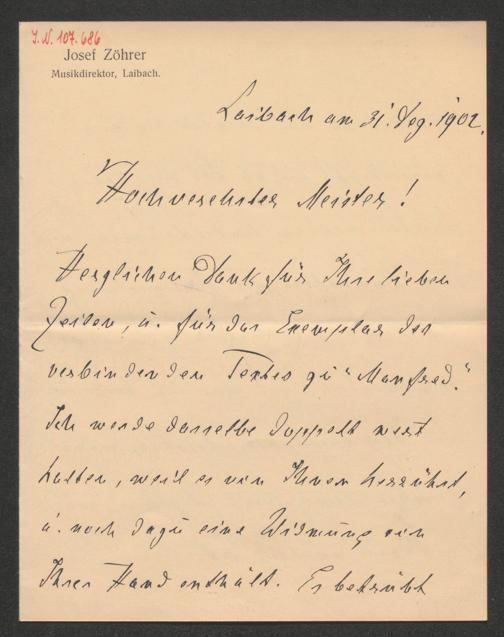 I.N. 107.686
Josef Zöhrer
Musikdirektor, Laibach.
Laibach am 31. Dez. 1902.
Hochverehrter Meister!
Herzlichen Dank für Ihre lieben
Zeilen, u. für das Exemplar des
verbindenden Textes zu "Manfred".
Ich werde dasselbe doppelt wert
halten, weil es von Ihnen herrührt,
u. noch dazu eine Widmung von
Ihrer Hand enthält. Es betrübt